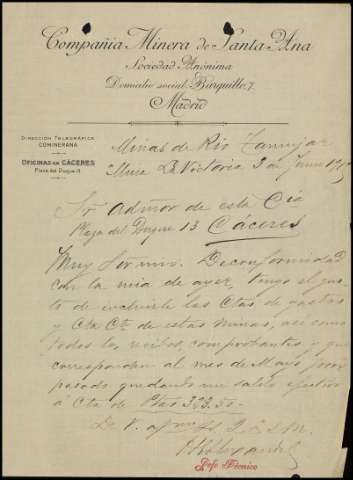 Compañia Minera de Santa Ana
Sociedad Anónima
Domicilio social: Barquillo, 7.
Madrid
DIRECCIÓN TELEGRÁFICA
COMINERANA
OFICINAS EN CÁCERES
Plaza del Duque 13
Minas de Rio
La Victoria 3 de Junio
Sr Admor de esta Cía
Plaza del Duque 13 Cáceres
Muy Sr mio: De conformidad
con la mia de ayer, tengo el gus-
to de incluirle las Ctas de gastos
y Cta Cte de estas minas, asi como
todos los recibos, comprobantes, y que
corresponden al mes de Mayo
pasado quedando un saldo efectivo
á Cta de Ptas 323.50.
De V. afmo S. S. q. b. s. m.
Jefe Técnico